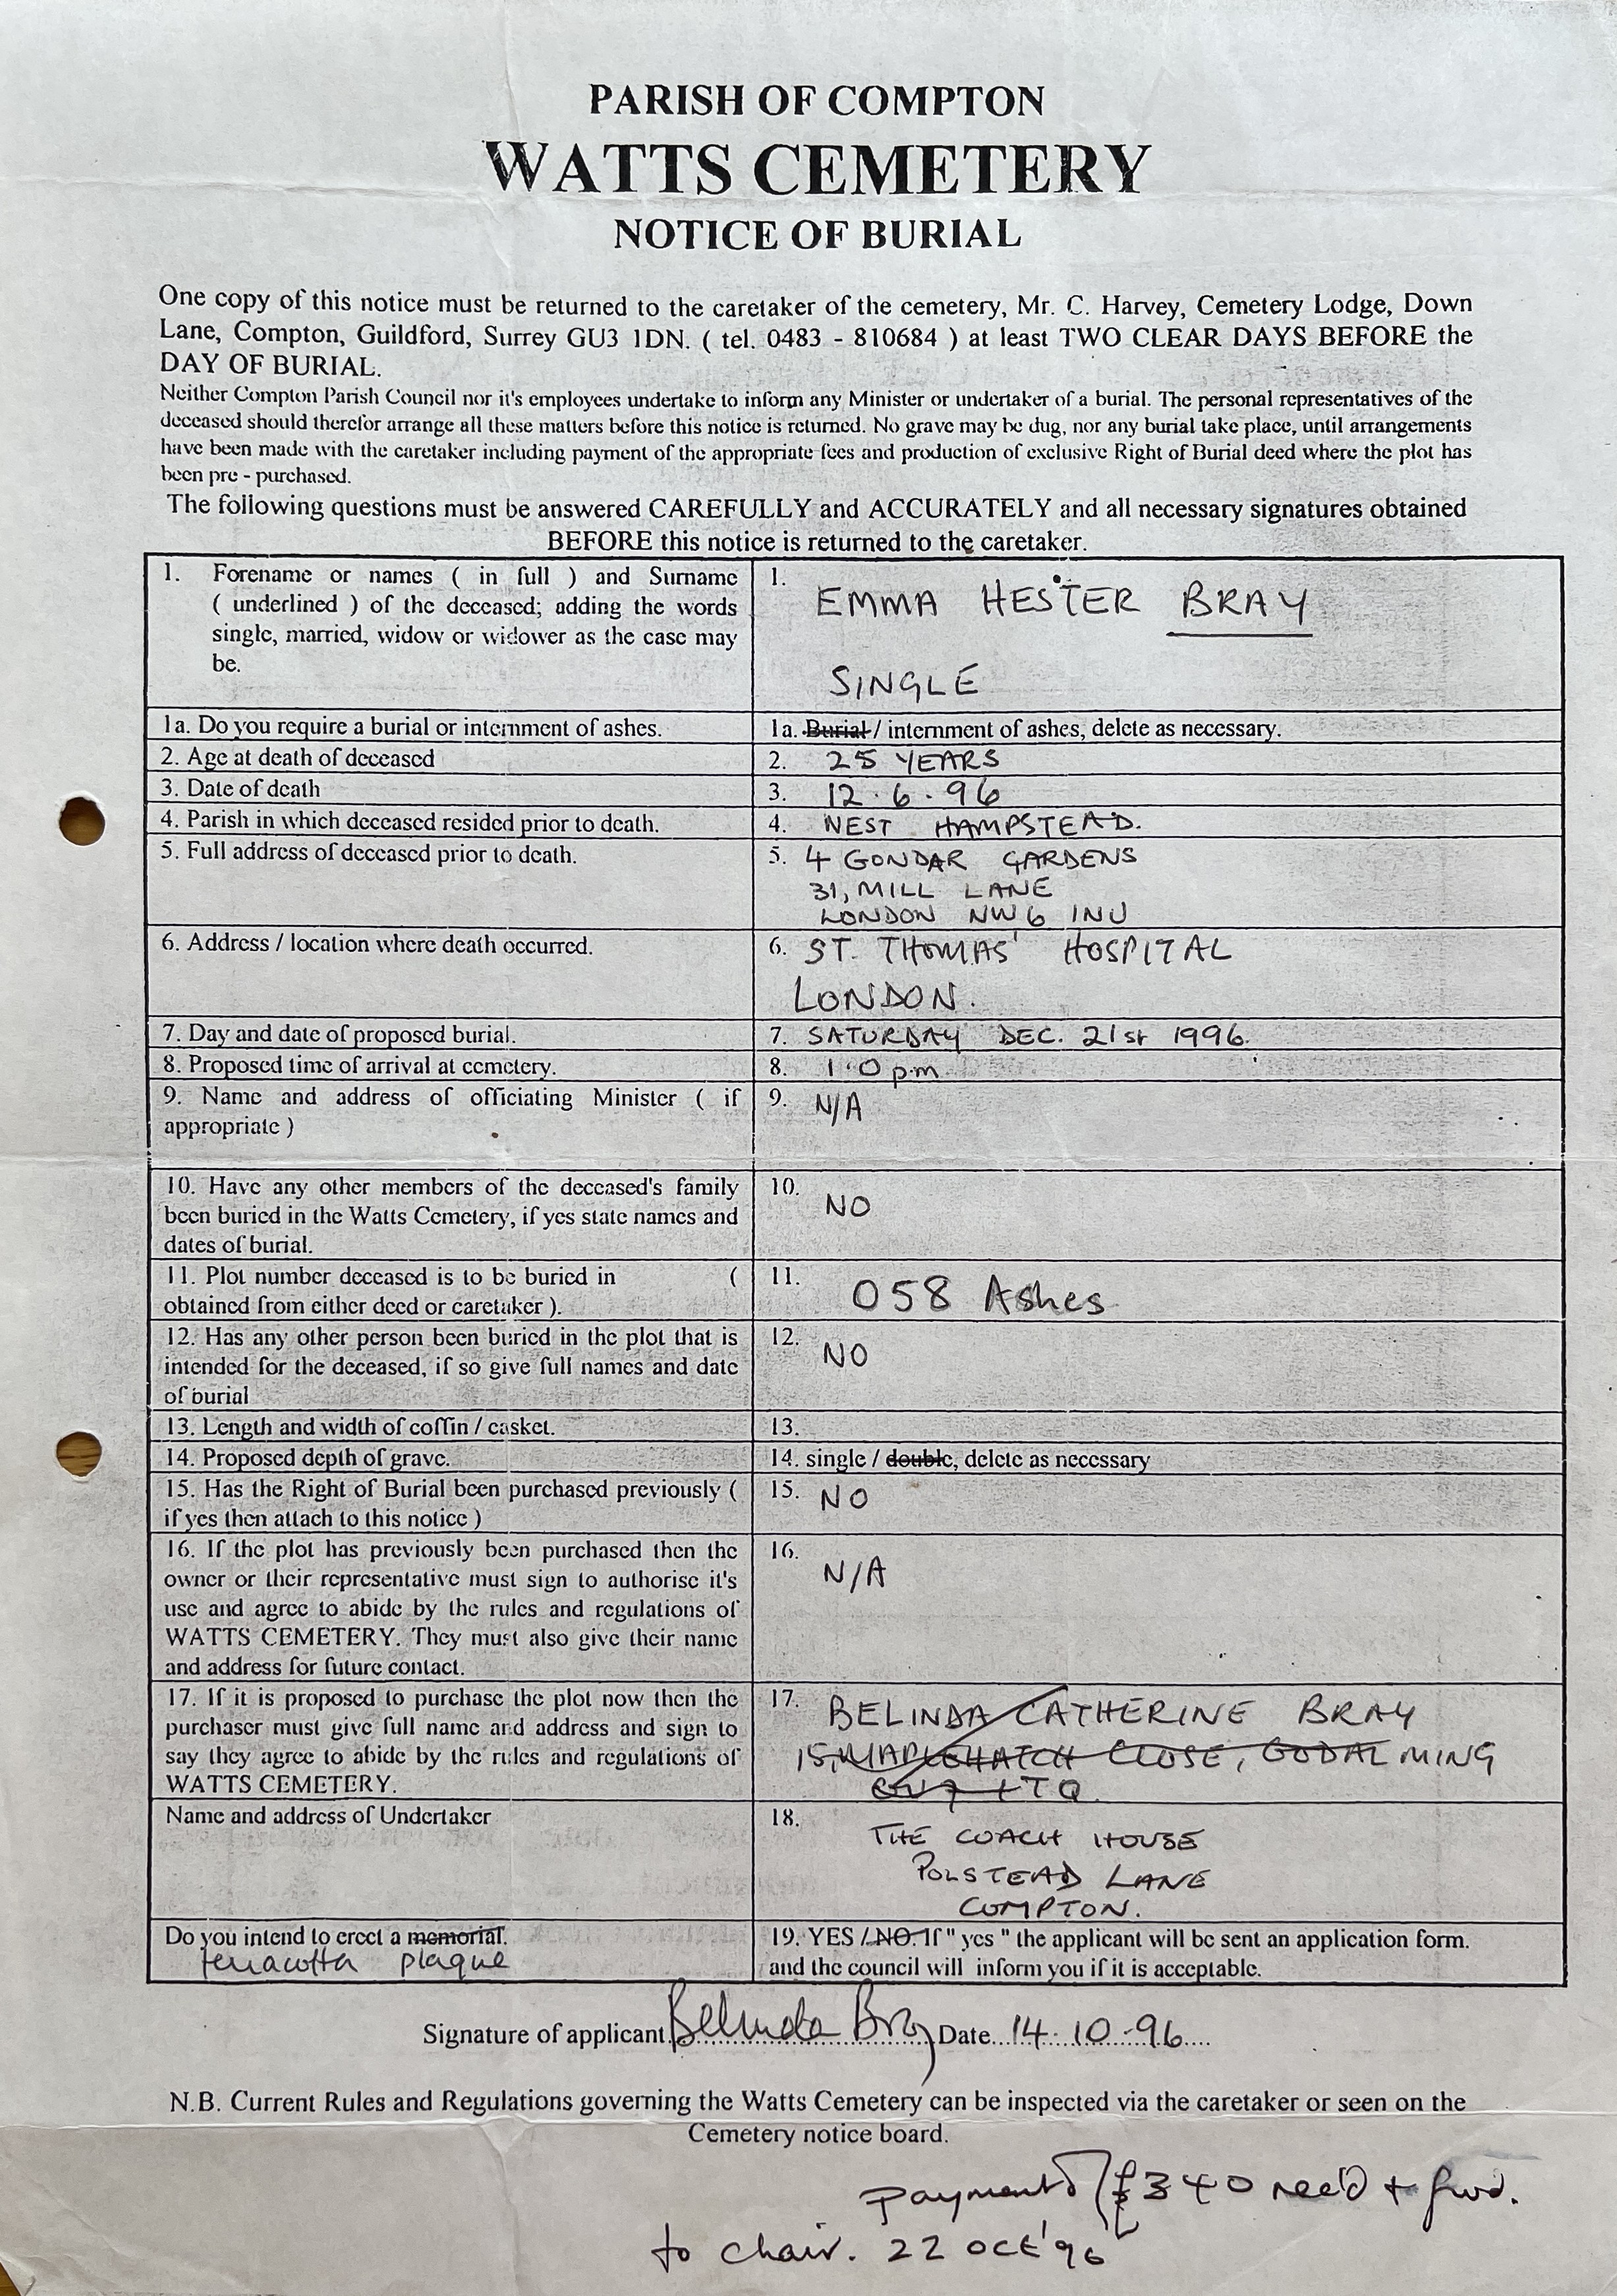 PARISH OF COMPTON
WATTS CEMETERY
NOTICE OF BURIAL
One copy of this notice must be returned to the caretaker of the cemetery, Mr. C. Harvey, Cemetery Lodge, Down
Lane, Compton, Guildford, Surrey GU3 1DN. ( tel. 0483 - 810684 ) at least TWO CLEAR DAYS BEFORE the
DAY OF BURIAL.
Neither Compton Parish Council nor it's employees undertake to inform any Minister or undertaker of a burial. The personal representatives of the
deceased should therefor arrange all these matters before this notice is returned. No grave may be dug, nor any burial take place, until arrangements
have been made with the caretaker including payment of the appropriate fees and production of exclusive Right of Burial deed where the plot has
been pre - purchased.
The following questions must be answered CAREFULLY and ACCURATELY and all necessary signatures obtained
BEFORE this notice is returned to the caretaker.
1. Forename or names ( in full ) and Surname
( underlined ) of the deceased; adding the words
single, married, widow or widower as the case may
be.
1.
EMMA HESTER BRAY
SINGLE
1a. Do you require a burial or internment of ashes.
1a. Burial / internment of ashes, delete as necessary.
2. Age at death of deceased
2. 25 YEARS
3. Date of death
3. 12.6.96
4. Parish in which deceased resided prior to death.
4. WEST HAMPSTEAD.
5. Full address of deceased prior to death.
5. 4 GONDAR GARDENS
31, MILL LANE
LONDON NW6 1NU
6. Address / location where death occurred.
6. ST. THOMAS' HOSPITAL
LONDON.
7. Day and date of proposed burial.
7. SATURDAY DEC. 21st 1996.
8. Proposed time of arrival at cemetery.
8. 1.0 pm
9. Name and address of officiating Minister ( if
appropriate )
9. N/A
10. Have any other members of the deceased's family
been buried in the Watts Cemetery, if yes state names and
dates of burial.
10. NO
11. Plot number deceased is to be buried in (
obtained from either deed or caretaker ).
11. 058 Ashes
12. Has any other person been buried in the plot that is
intended for the deceased, if so give full names and date
of burial
12. NO
13. Length and width of coffin / casket.
13.
14. Proposed depth of grave.
14. single / double, delete as necessary
15. Has the Right of Burial been purchased previously (
if yes then attach to this notice )
15. NO
16. If the plot has previously been purchased then the
owner or their representative must sign to authorise it's
use and agree to abide by the rules and regulations of
WATTS CEMETERY. They must also give their name
and address for future contact.
16. N/A
17. If it is proposed to purchase the plot now then the
purchaser must give full name and address and sign to
say they agree to abide by the rules and regulations of
WATTS CEMETERY.
17. BELINDA CATHERINE BRAY
15, MAPLEHATCH CLOSE, GODALMING
GU7 1TQ
Name and address of Undertaker
18.
THE COACH HOUSE
POLSTEAD LANE
COMPTON.
Do you intend to erect a memorial.
terracotta plaque
19. YES / NO. If " yes " the applicant will be sent an application form.
and the council will inform you if it is acceptable.
Signature of applicant Belinda Bray Date 14.10.96
N.B. Current Rules and Regulations governing the Watts Cemetery can be inspected via the caretaker or seen on the
Cemetery notice board.
payment £340 rec'd + fwd.
to chair. 22 OCT '96